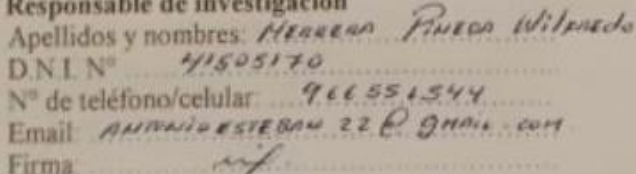 Responsable de investigación
Apellidos y nombres: HERRERA PINEDA Wilfredo
D.N.I. N° 41505170
N° de teléfono/celular: 966556544
Email: ANTONIOESTEBAN22@gmail.com
Firma